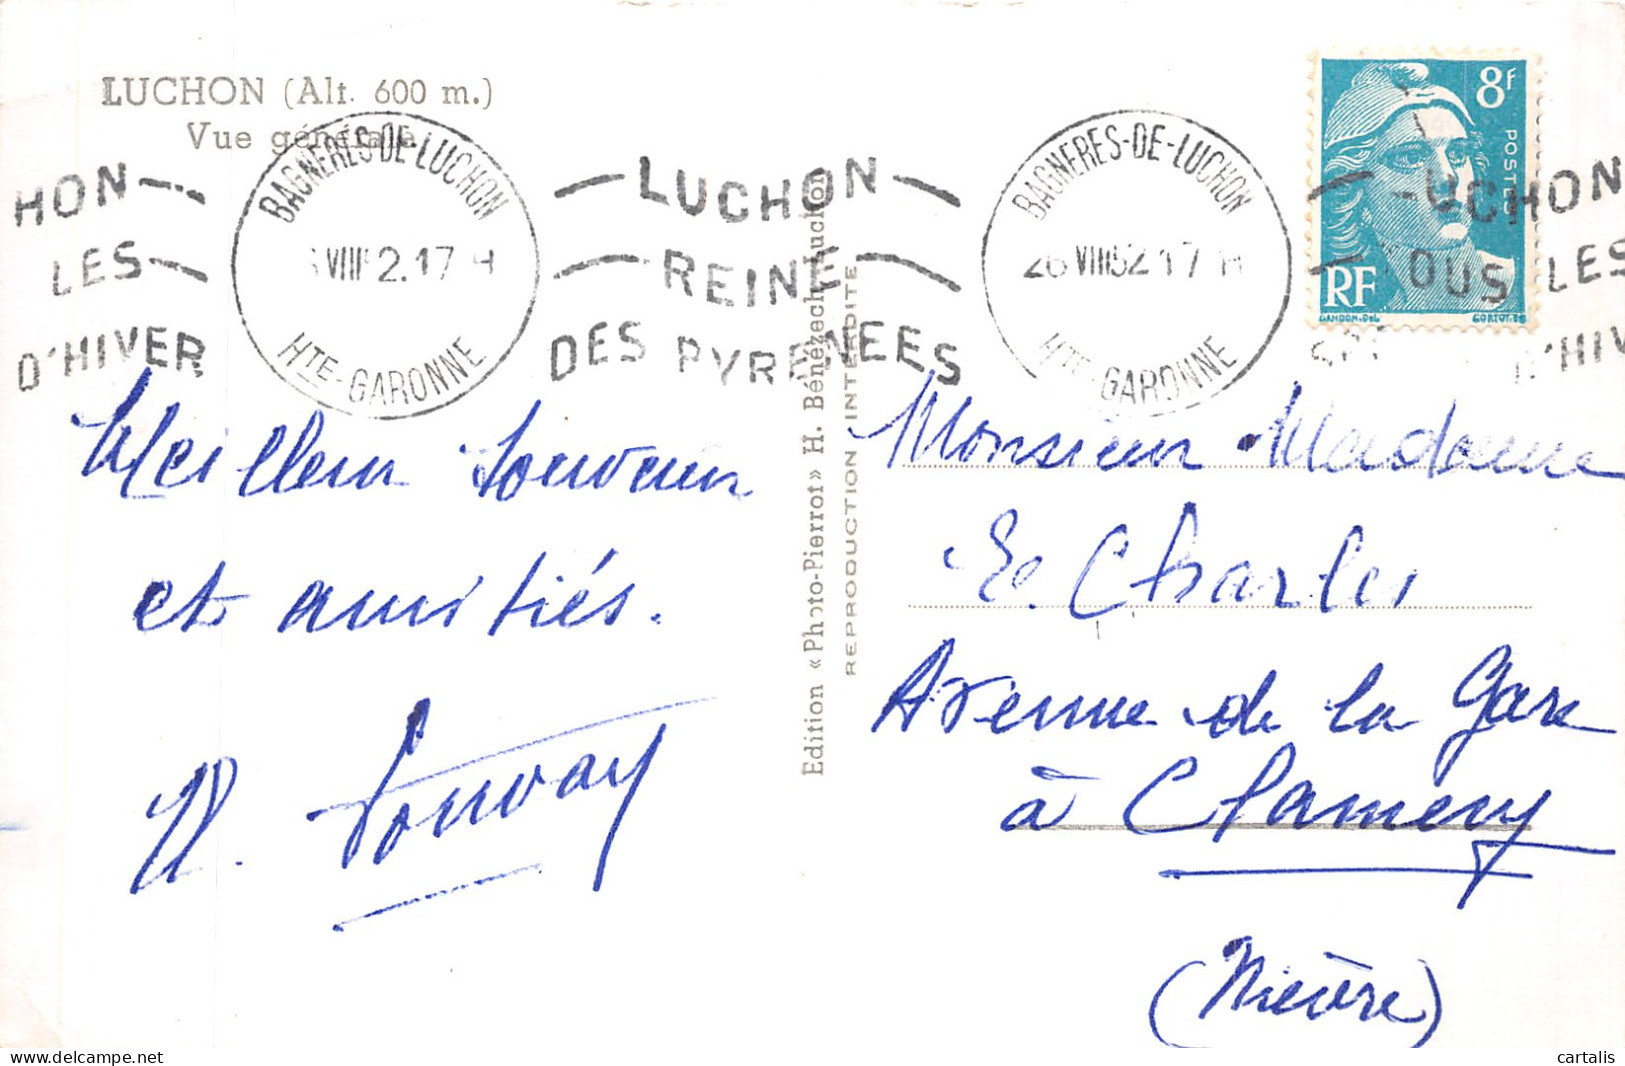 LUCHON (Alt. 600 m.)
Vue générale.
HON
LES
D'HIVER
BAGNERES-DE-LUCHON
VIII 2.17 H
HTE-GARONNE
LUCHON
REINE
DES PYRENEES
BAGNERES-DE-LUCHON
26 VIII52 17 H
HTE-GARONNE
8F
POSTES
RF
GANDON.DEL
LUCHON
OUS LES
D'HIV
Meilleur souvenir
et amitiés.
Edition « Photo-Pierrot » H. Bénézech Luchon
REPRODUCTION INTERDITE
Monsieur Madame
E. Charles
Avenue de la Gare
à Clamecy
(Nièvre)
cartalis